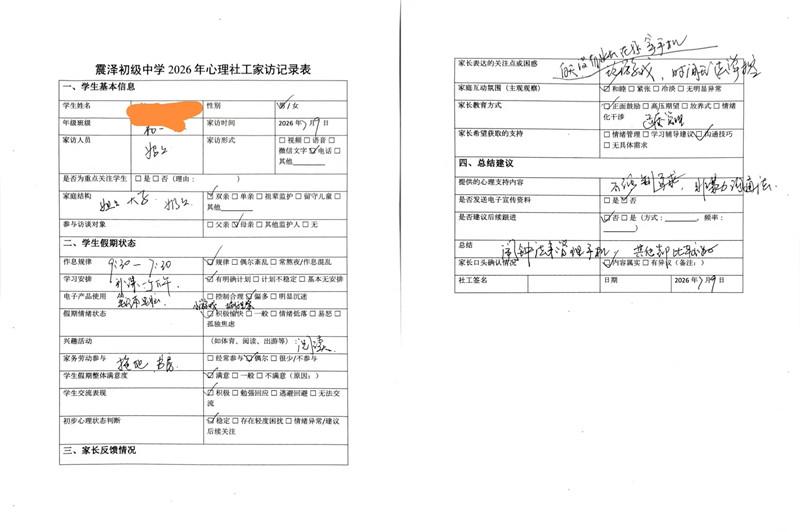 震泽初级中学 2026 年心理社工家访记录表
一、学生基本信息
学生姓名 性别 男/女
年级班级 初一 家访时间 2026年7月9日
家访人员 家访形式 □视频 □语音 □
微信文字 □电话 □
其他
是否为重点关注学生 □是 □否（理由： ）
家庭结构 □双亲 □单亲 □祖辈监护 □留守儿童 □
其他
参与访谈对象 □父亲 □母亲 □其他监护人 □无
二、学生假期状态
作息规律 9:30—7:30 □规律 □偶尔紊乱 □常熬夜/作息混乱
学习安排 □有明确计划 □计划不稳定 □基本无安排
电子产品使用 □控制合理 □偏多 □明显沉迷
假期情绪状态 □积极愉快 □一般 □情绪低落 □易怒 □
孤独焦虑
兴趣活动 （如体育、阅读、出游等）：阅读
家务劳动参与 拖地 □经常参与 □偶尔 □很少/不参与
学生假期整体满意度 □满意 □一般 □不满意（原因：）
学生交流表现 □积极 □勉强回应 □逃避回避 □无法交
流
初步心理状态判断 □稳定 □存在轻度困扰 □情绪异常/建议
后续关注
三、家长反馈情况
家长表达的关注点或困惑
家庭互动氛围（主观观察） □和睦 □紧张 □冷淡 □无明显异常
家长教育方式 □正面鼓励 □高压期望 □放养式 □情绪
化干涉
家长希望获取的支持 □情绪管理 □学习辅导建议 □沟通技巧
□无具体需求
四、总结建议
提供的心理支持内容
是否发送电子宣传资料 □是 □否
是否建议后续跟进 □否 □是（方式： ，频率：
）
总结
家长口头确认情况 □内容属实 □有异议（备注：）
社工签名 日期 2026年7月9日